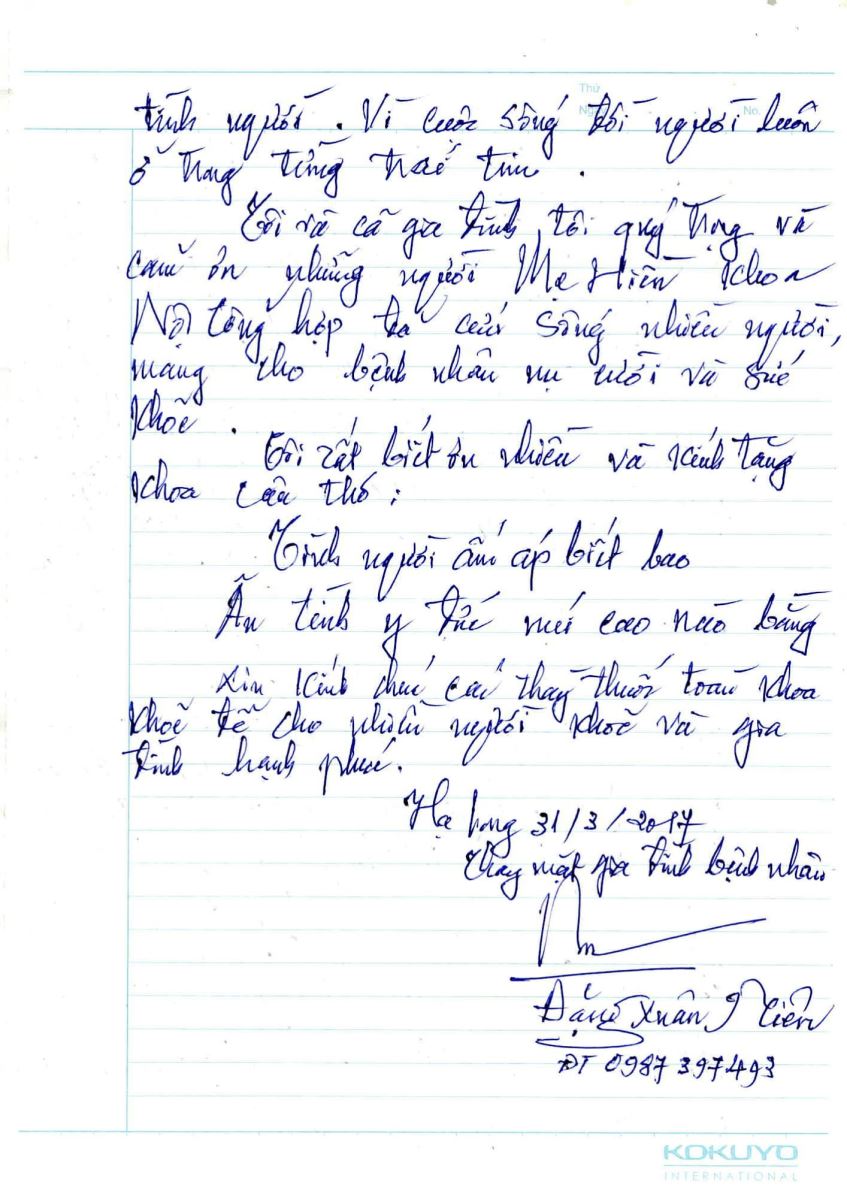 Thứ
No.
tình người. Vì cuộc sống đối người luôn
ở trong từng trái tim.
Tôi và cả gia đình tôi quý trọng và
cảm ơn những người Mẹ Hiền khoa
Nội tổng hợp đã cứu sống nhiều người,
mang cho bệnh nhân nụ cười và sức
khoẻ.
Tôi rất biết ơn nhiều và kính tặng
khoa câu thơ:
Tình người ấm áp biết bao
Ân tình y đức núi cao nào bằng
Xin kính chúc các thầy thuốc toàn khoa
khoẻ để cho nhiều người khoẻ và gia
đình hạnh phúc.
Hạ long 31/3/2017
Thay mặt gia đình bệnh nhân
Đặng Xuân Tiến
ĐT 0987 397493
KOKUYO
INTERNATIONAL